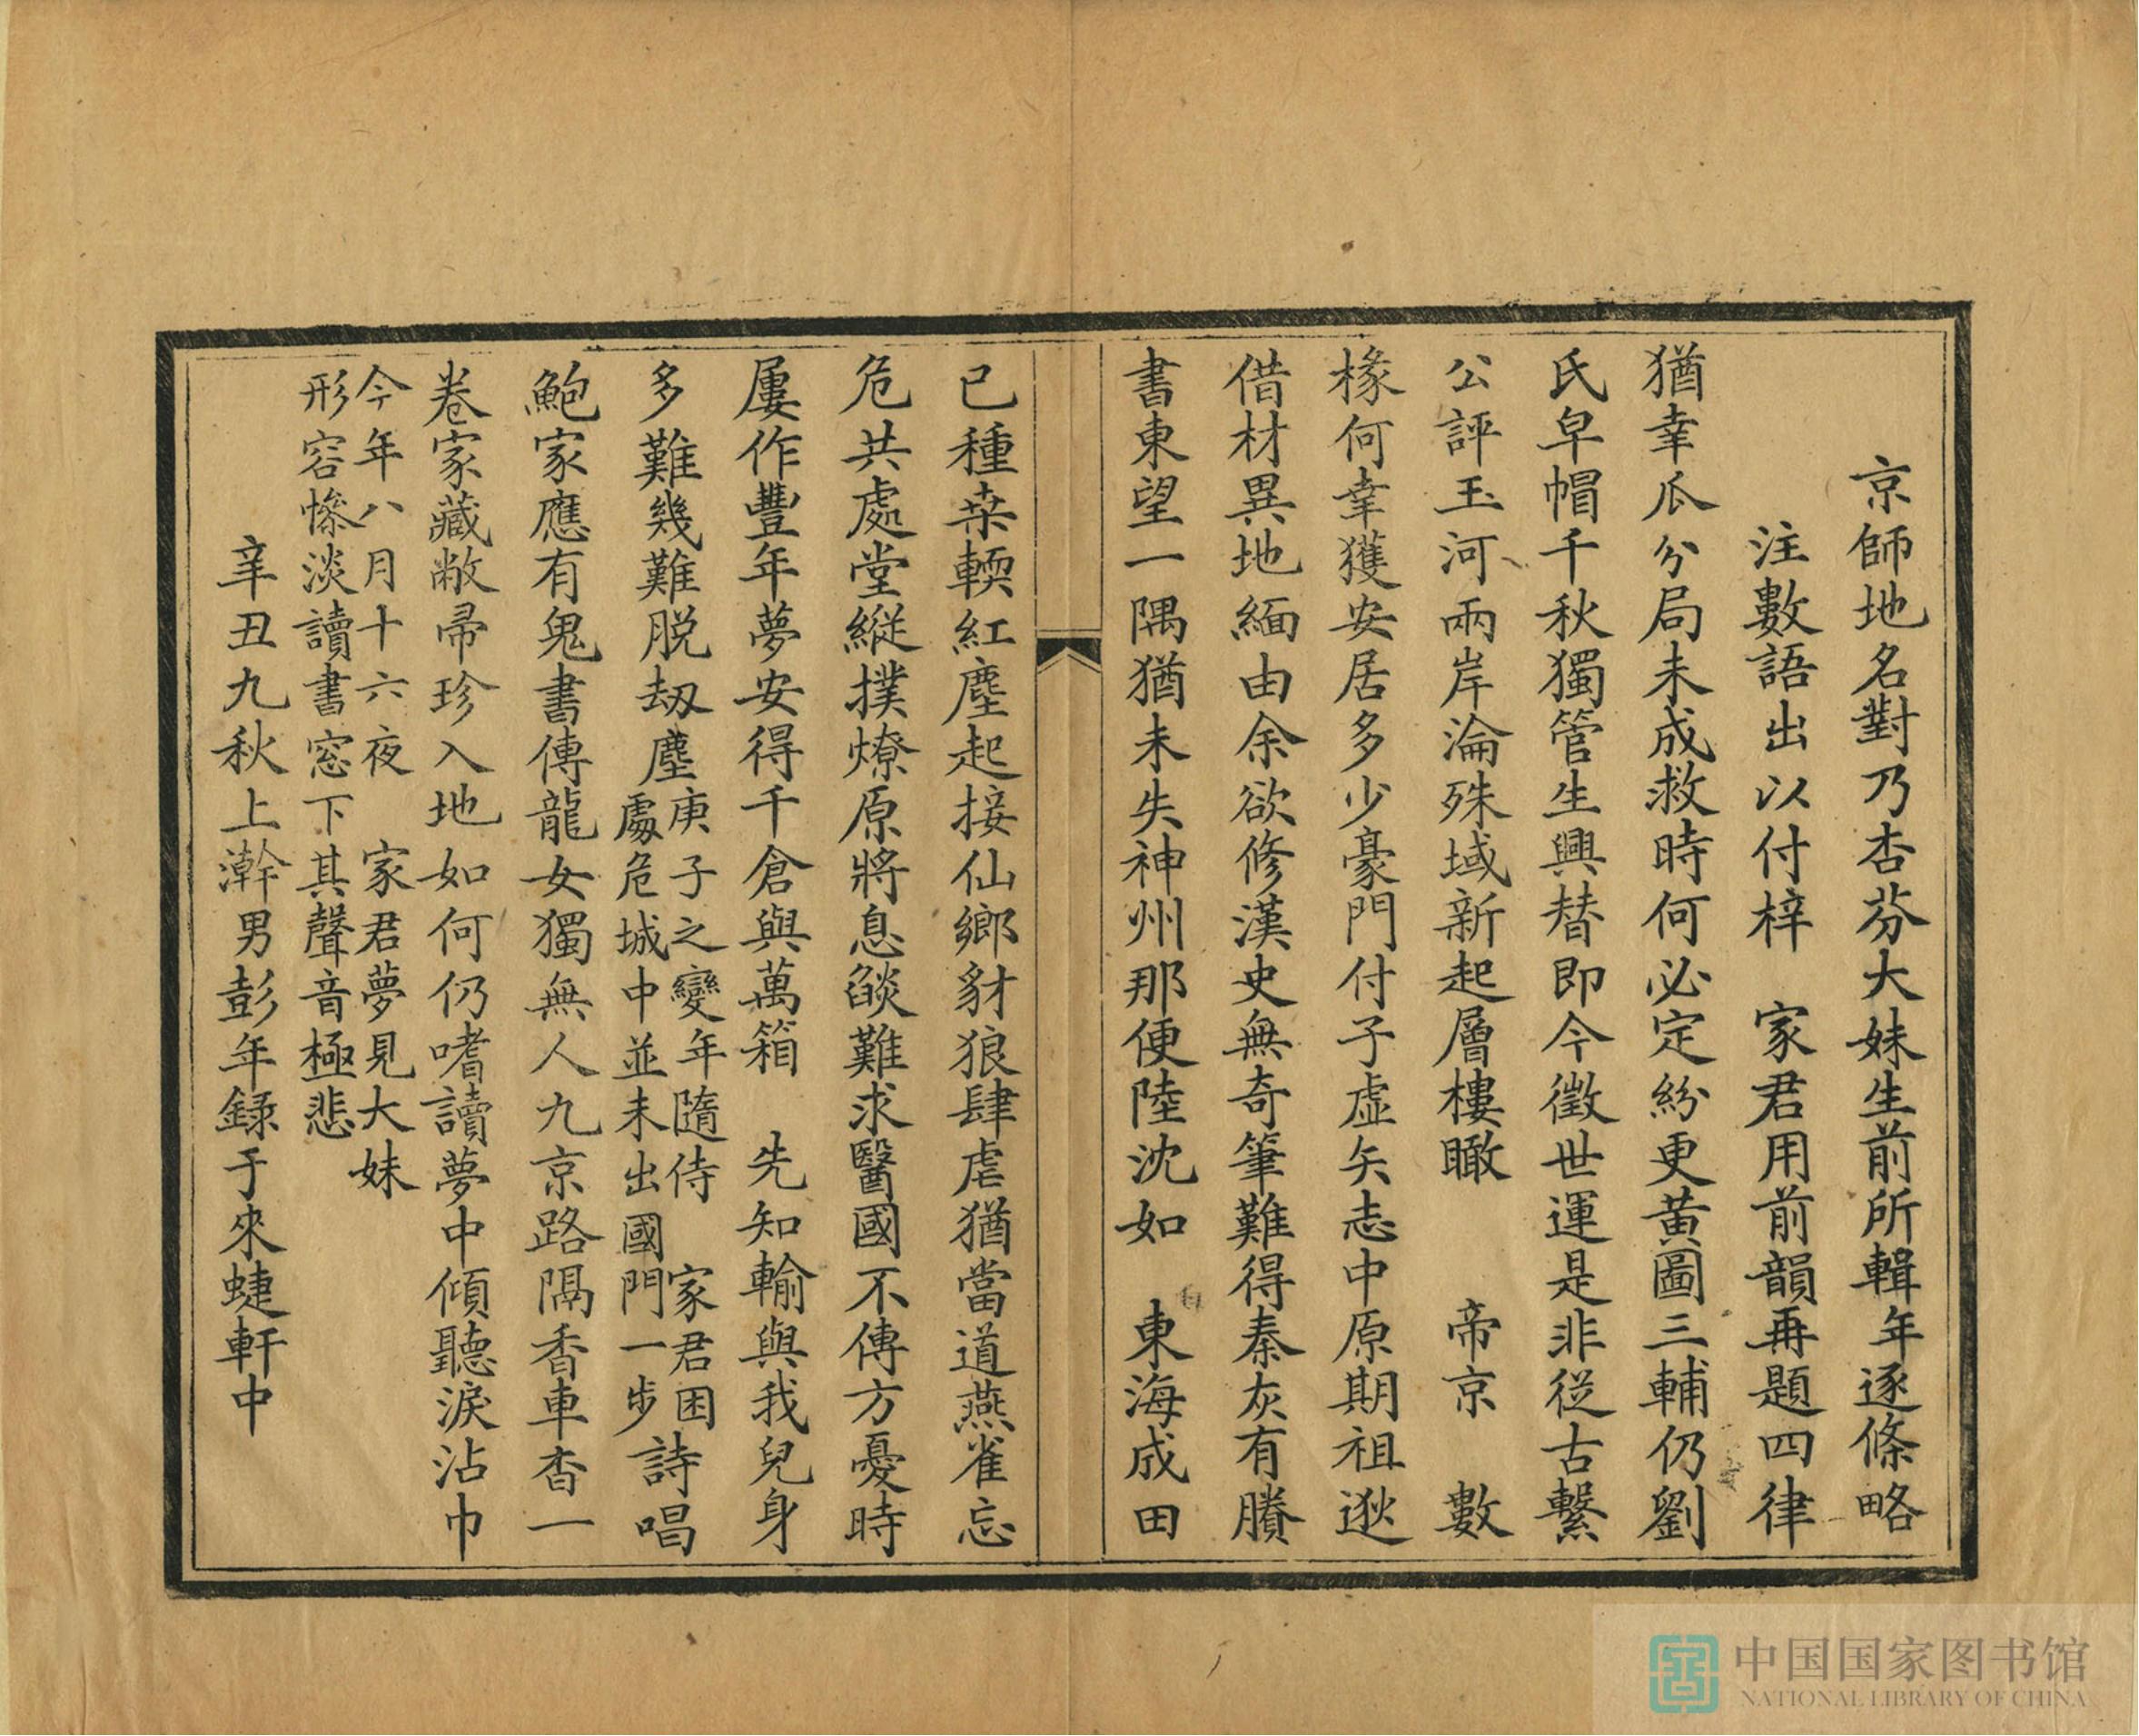 京師地名對乃杏芬大妹生前所輯年逐條略
注數語出以付梓　家君用前韻再題四律
猶幸瓜分局未成救時何必定紛更黃圖三輔仍劉
氏皁帽千秋獨管生興替即今徵世運是非從古繫
公評玉河兩岸淪殊域新起層樓瞰　帝京　數
椽何幸獲安居多少豪門付子虛矢志中原期祖逖
借材異地緬由余欲修漢史無奇筆難得秦灰有賸
書東望一隅猶未失神州那便陸沈如　東海成田
已種桒輭紅塵起接仙鄉豺狼肆虐猶當道燕雀忘
危共處堂縱撲燎原將息燄難求醫國不傳方憂時
屢作豐年夢安得千倉與萬箱　先知輸與我兒身
多難幾難脫刼塵
庚子之變年隨侍　家君困
處危城中並未出國門一步
詩唱
鮑家應有鬼書傳龍女獨無人九京路隔香車杳一
卷家藏敝帚珍入地如何仍嗜讀夢中傾聽淚沾巾
今年八月十六夜　家君夢見大妹
形容慘淡讀書窓下其聲音極悲
辛丑九秋上澣男彭年錄于來蜨軒中
中国国家图书馆
NATIONAL LIBRARY OF CHINA